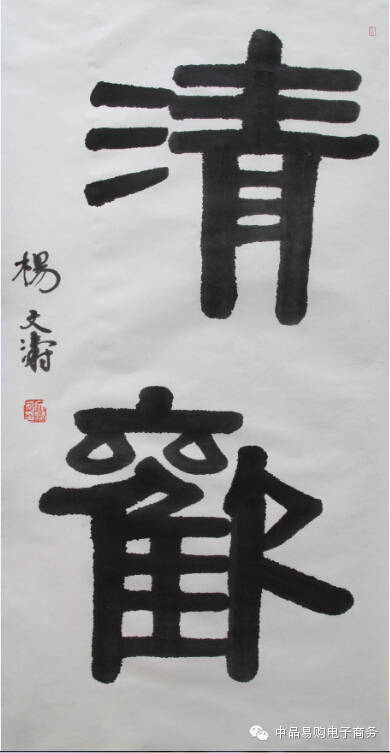 清歡
楊文濤
中品易购电子商务